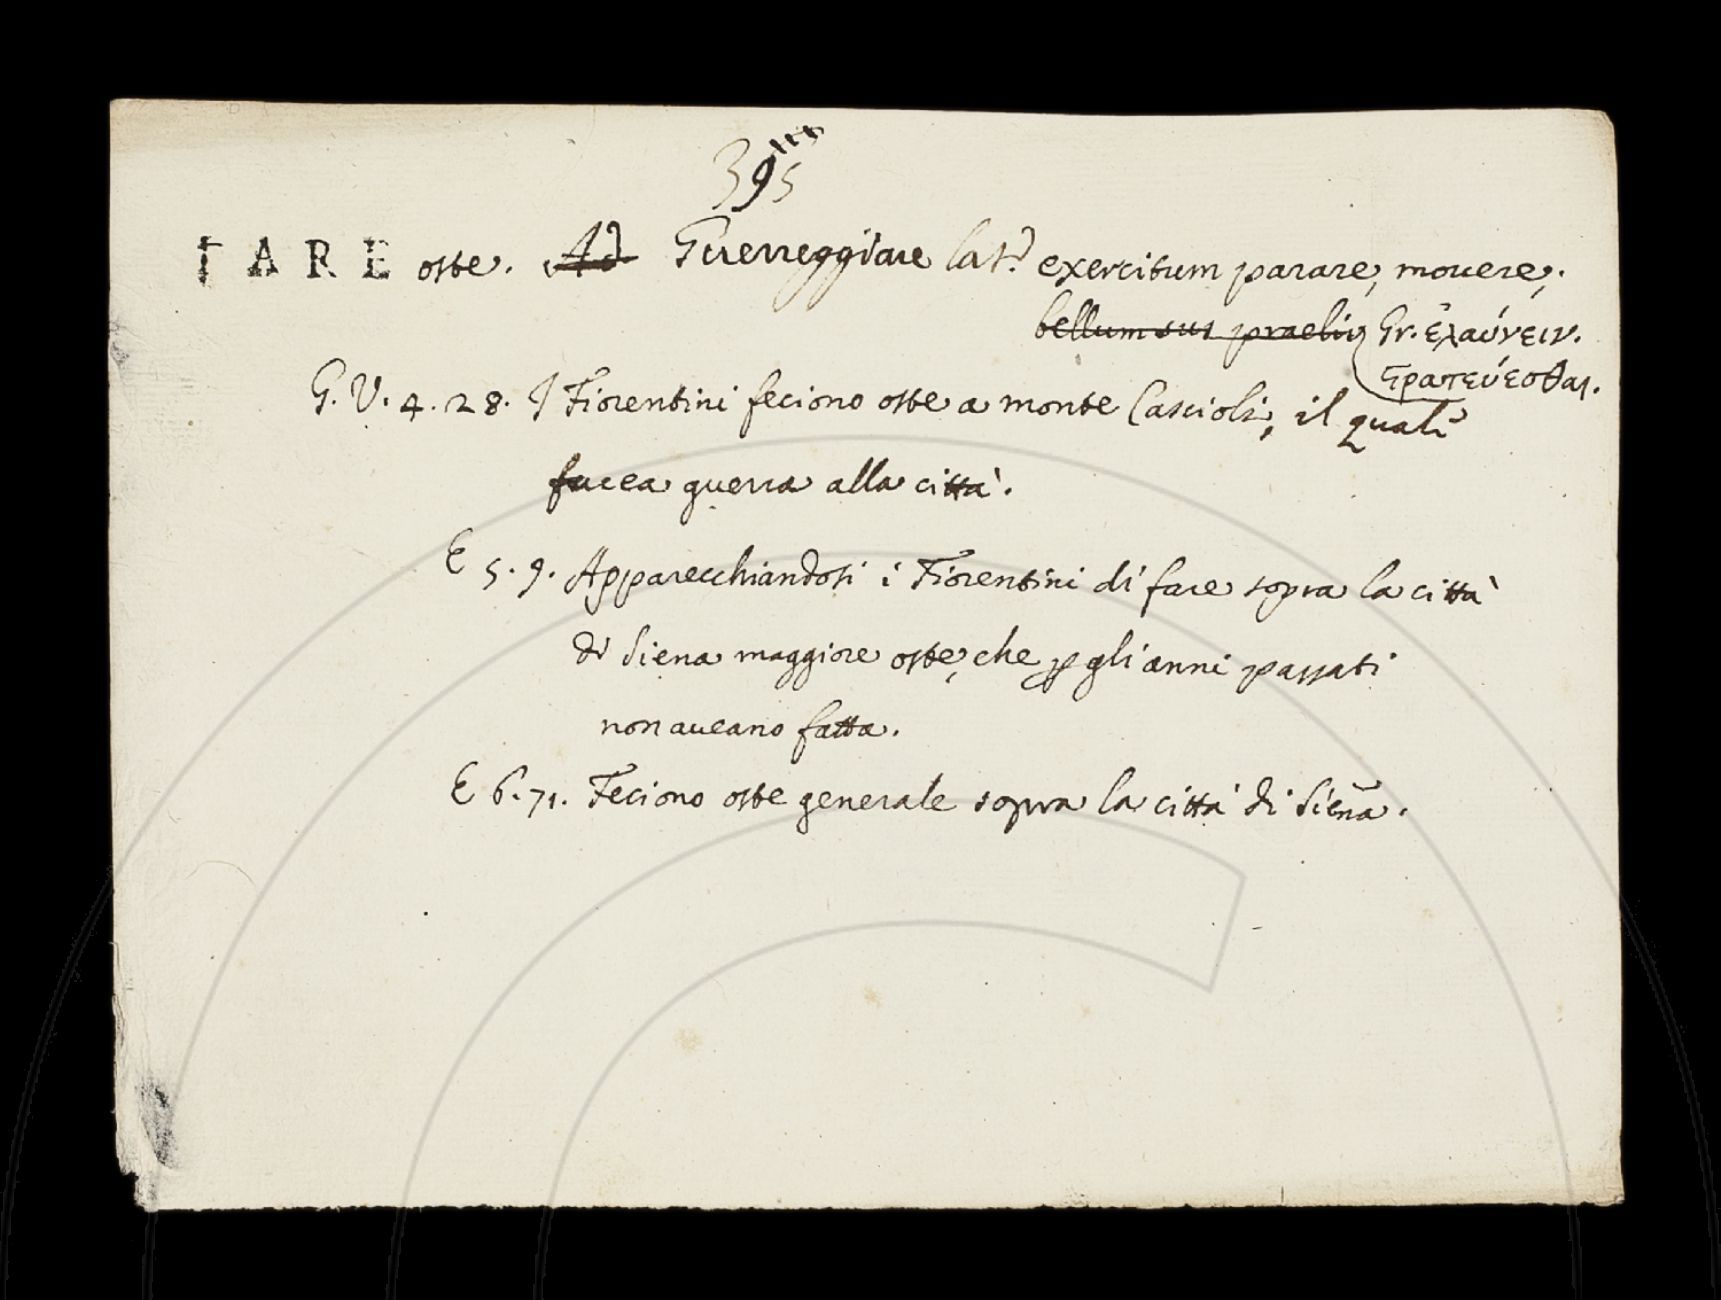 395
FARE oste. Ad Guerreggiare lat. exercitum parare, movere,
bellum sus praeliu Gr. ἐλαύνειν.
στρατεύεσθαι.
G. V. 4. 28. I Fiorentini feciono oste a monte Cascioli, il quale
facea guerra alla città.
E 5. 9. Apparecchiandosi i Fiorentini di fare sopra la città
di Siena maggiore oste, che p gli anni passati
non aveano fatta.
E 6. 71. Feciono oste generale sopra la città di Siena.